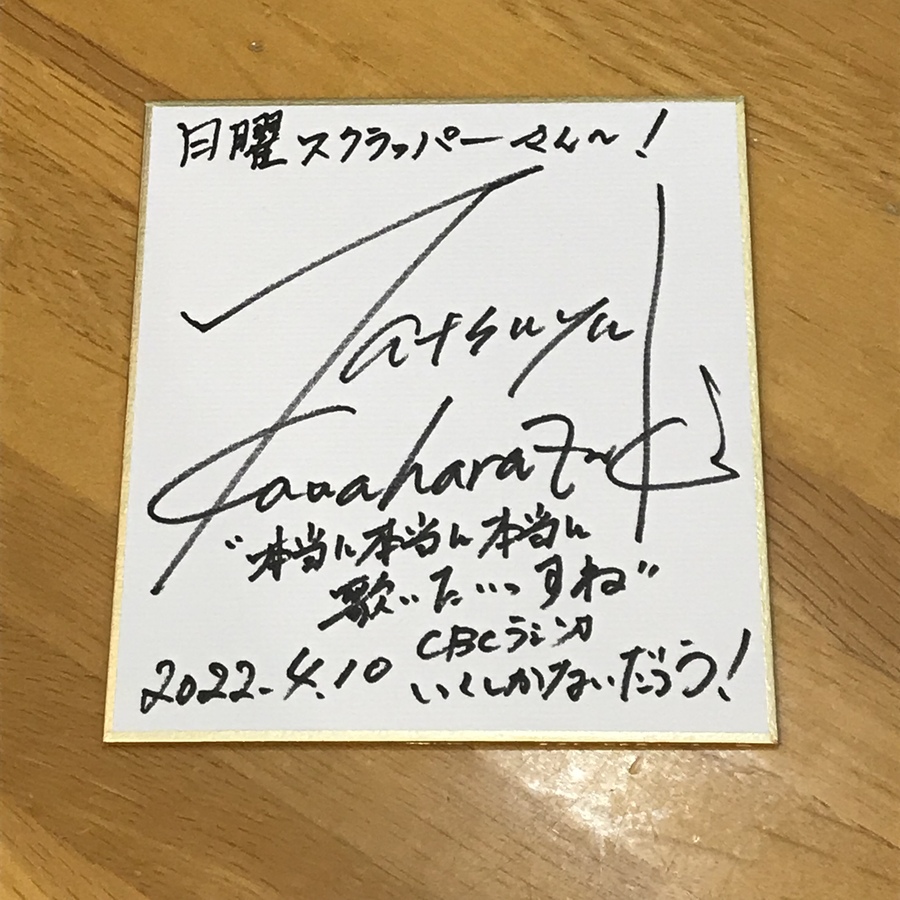 日曜スクラッパーさん〜!
Tatsuya
"本当に本当に本当に
歌いたいっすね"
CBCラジオ
2022.4.10 いくしかないだろう!